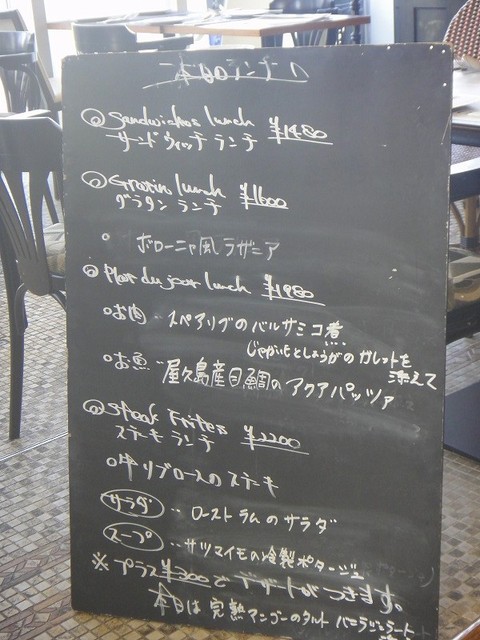 本日のランチ
Sandwiches lunch ¥1480
サンドウィッチ ランチ
Gratin lunch ¥1600
グラタン ランチ
ボローニャ風ラザニア
Plat du jour lunch ¥1980
お肉‥スペアリブのバルサミコ煮
じゃがいもとしょうがのガレットを
添えて
お魚‥屋久島産目鯛のアクアパッツァ
Steak Frites ¥2200
ステーキ ランチ
牛リブロースのステーキ
サラダ‥ローストラムのサラダ
スープ‥サツマイモの冷製ポタージュ
※プラス¥300でデザートがつきます。
本日は完熟マンゴーのタルト バニラジェラート